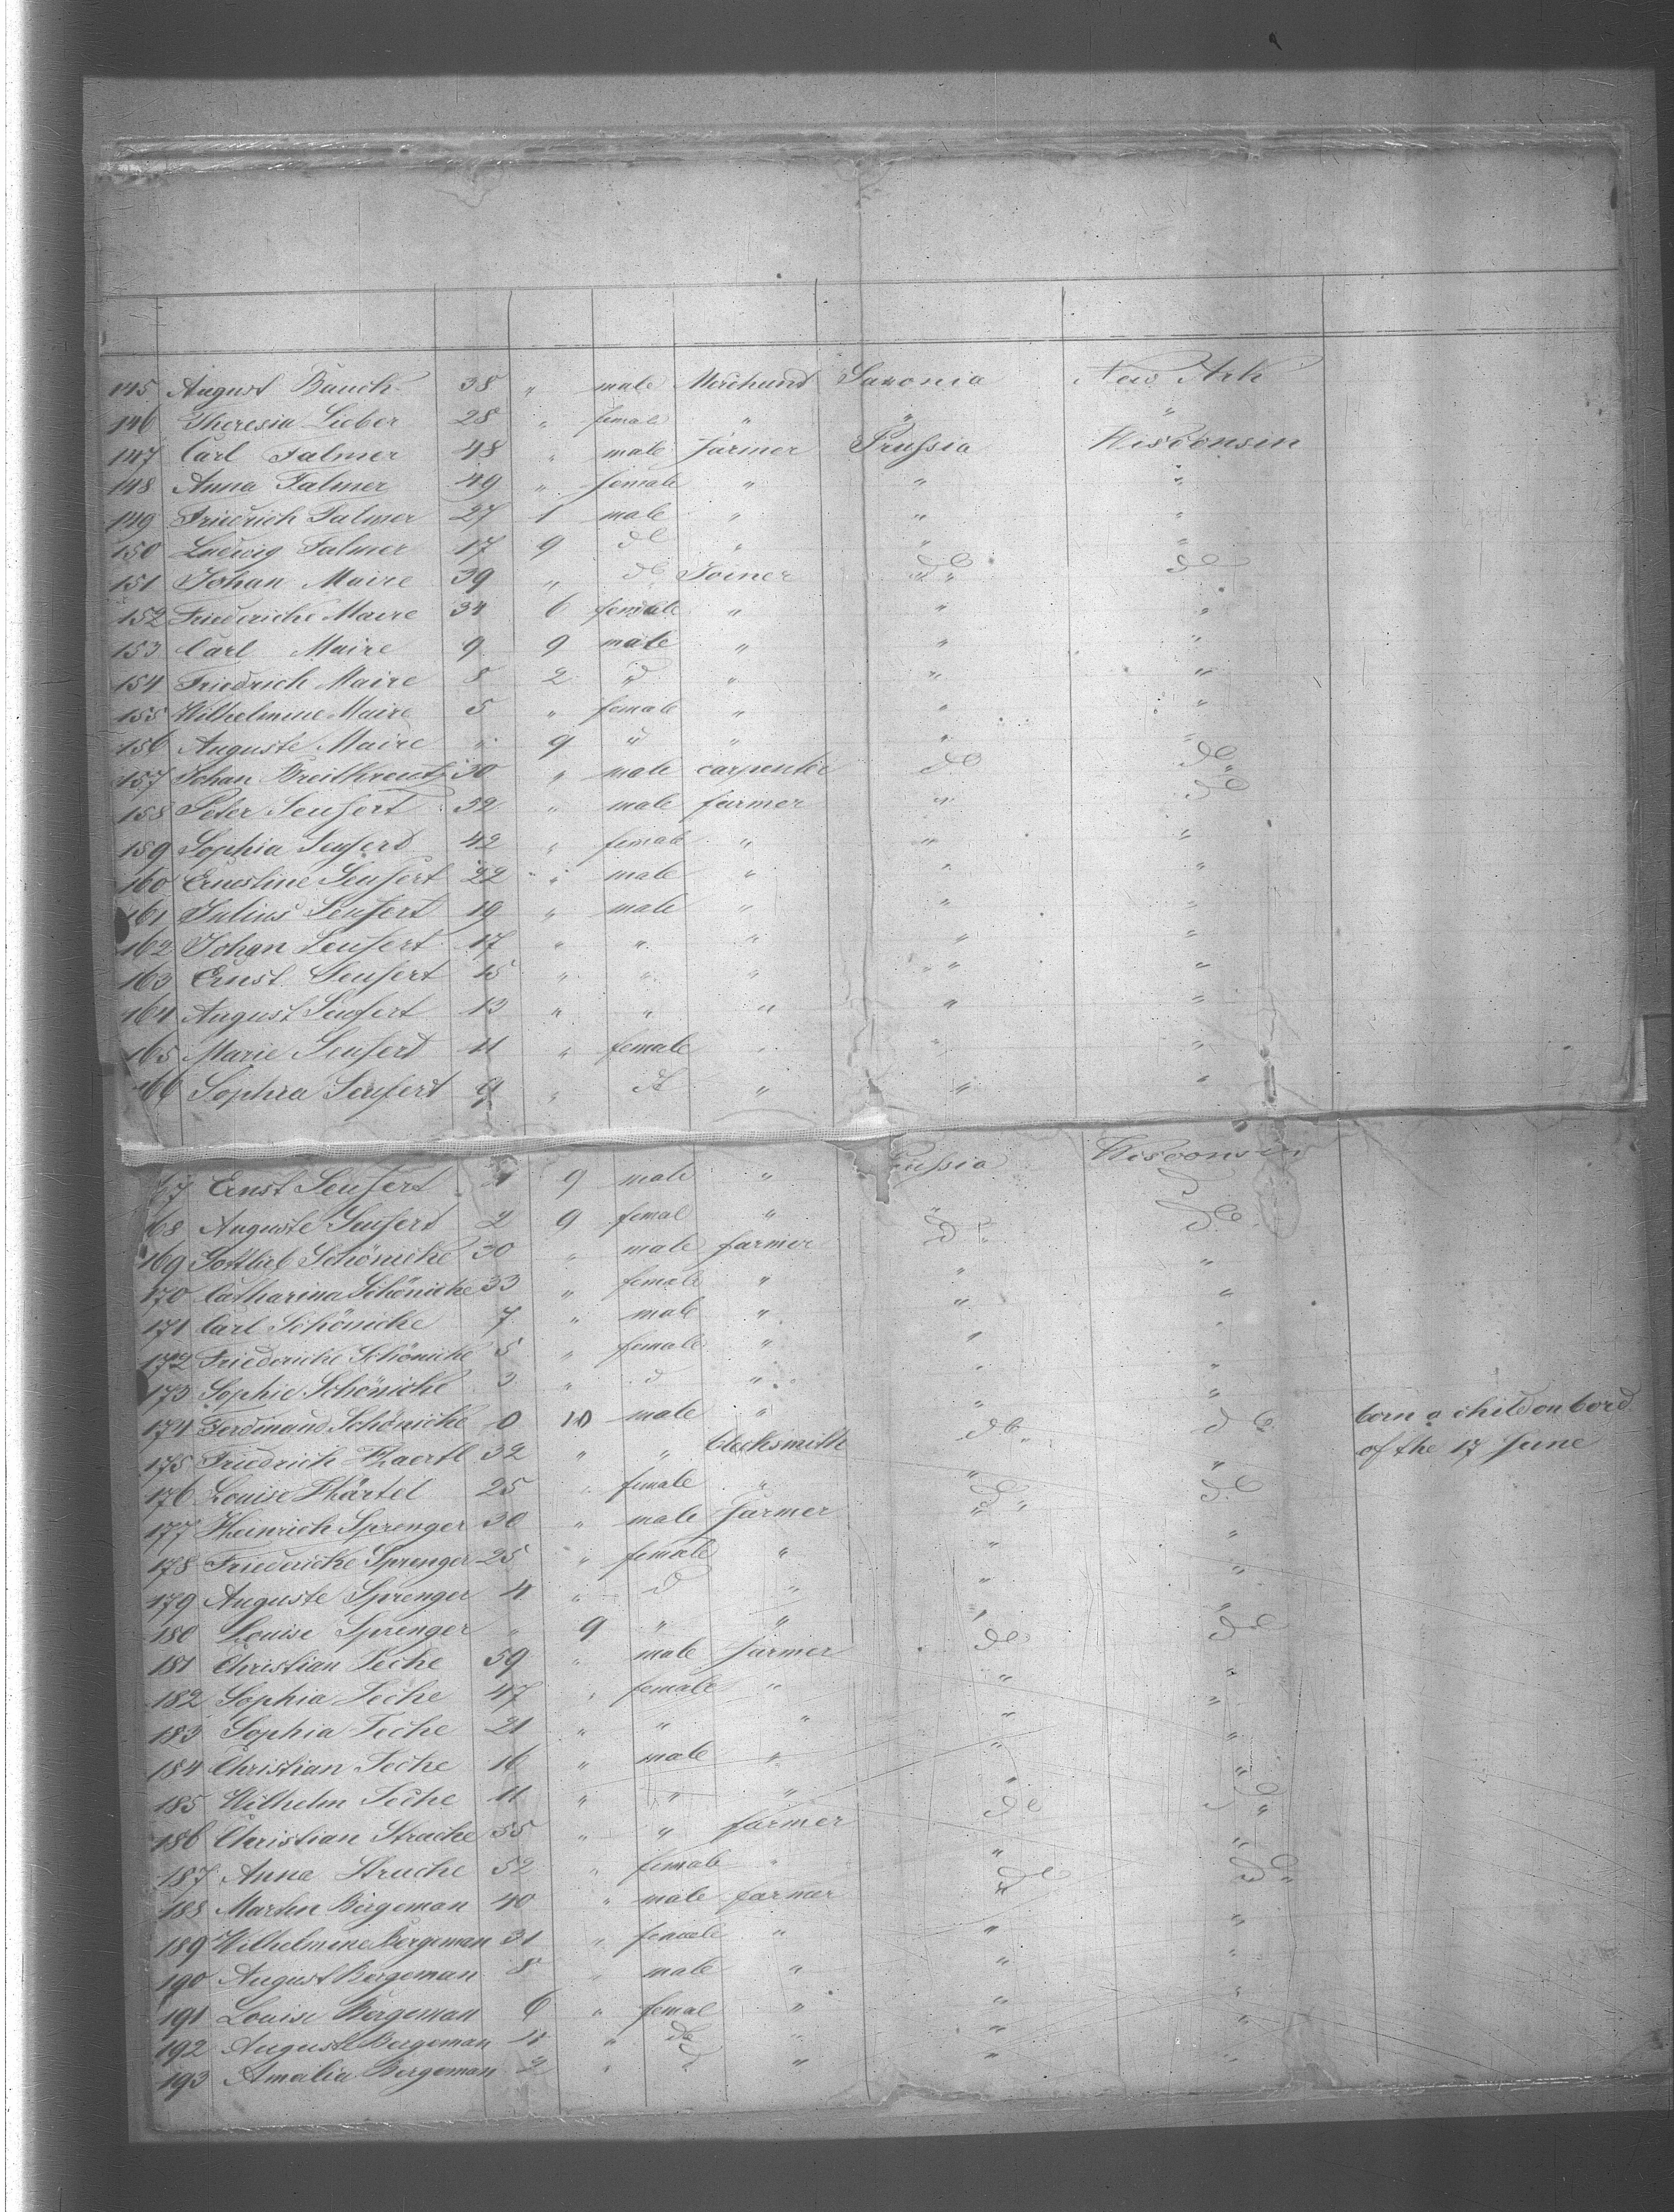 145 August Bauch 38 " male Merchand Saxonia New Ark
146 Theresia Lieber 28 " female " " "
147 Carl Falmer 48 " male farmer Prussia Wisconsin
148 Anna Falmer 49 " female " " "
149 Friedrich Falmer 27 1 male " " "
150 Ludwig Falmer 17 9 do " " "
151 Johan Maire 39 " do Joiner do " do
152 Friedericke Maire 34 6 female " " "
153 Carl Maire 9 9 male " " "
154 Friedrich Maire 8 2 d " " "
155 Wilhelmine Maire 5 " female " " "
156 Auguste Maire " 9 d " " "
157 Johan Breitkreutz 30 " male carpenter do do
158 Peter Seufert 52 " male farmer " do
159 Sophia Seufert 42 " female " " "
160 Ernestine Seufert 22 " male " " "
161 Julius Seufert 19 " male " " "
162 Johan Seufert 17 " " " " "
163 Ernst Seufert 15 " " " " "
164 August Seufert 13 " " " " "
165 Marie Seufert 11 " female " " "
166 Sophia Seufert 9 " d " " "
67 Ernst Seufert 9 male " ussia Wisconsin
68 Auguste Seufert 2 9 femal " " do
169 Gottlieb Schönicke 30 " male farmer d "
170 Catharina Schönicke 33 " female " " "
171 Carl Schönicke 7 " male " " "
172 Friedericke Schönicke 5 " female " " "
173 Sophie Schönicke 3 " d " " "
174 Ferdinand Schönicke 0 10 male " " " born a child on bord
175 Friedrich Haertl 32 " " blecksmith do do of the 17 June
176 Louise Härtel 25 " female " " "
177 Heinrich Sprenger 30 " male farmer do do
178 Friedericke Sprenger 25 " female " " "
179 Auguste Sprenger 4 " d " " "
180 Louise Sprenger " 9 " " " "
181 Christian Teche 59 " male farmer do do
182 Sophia Teche 47 " female " " "
183 Sophia Teche 21 " " " " "
184 Christian Teche 16 " male " " "
185 Wilhelm Teche 11 " " " " "
186 Christian Strache 55 " " farmer do do
187 Anna Strache 52 " female " " "
188 Martin Bergeman 40 " male farmer do do
189 Wilhelmine Bergeman 31 " female " " "
190 August Bergeman 8 " male " " "
191 Louise Bergeman 6 " femal " " "
192 Auguste Bergeman 4 " do " " "
193 Amalia Bergeman 2 " d " " "